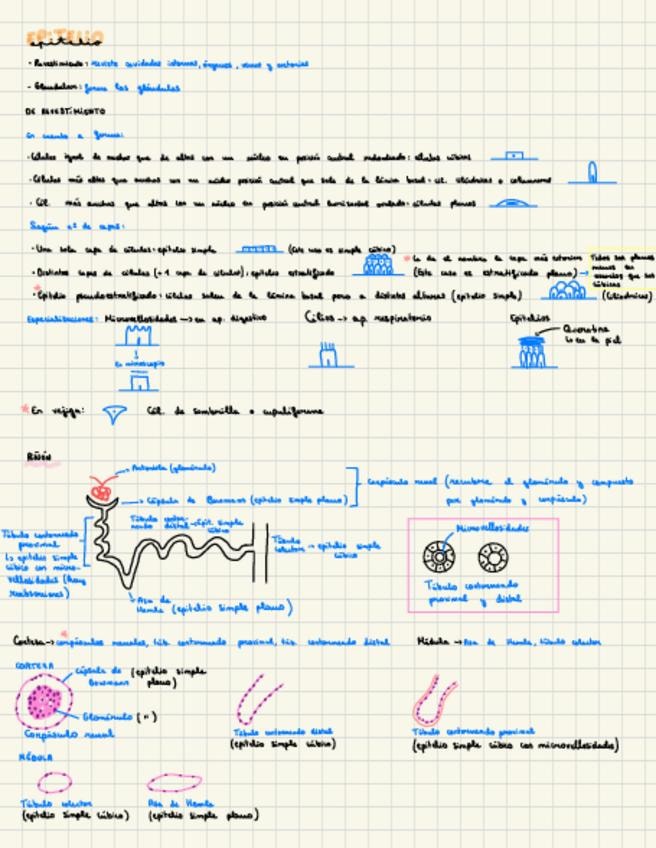 EPITELIO
epitelio
- Revestimiento: reviste cavidades internas, órganos, venas y arterias
- Glandular: forma las glándulas
DE REVESTIMIENTO
En cuanto a forma:
- Células igual de anchas que de altas con un núcleo en posición central redondeado: células cúbicas
- Células más altas que anchas con un núcleo posición central que sale de la lámina basal: cél. cilíndricas o columnares
- Cél. más anchas que altas con un núcleo en posición central ovalado: células planas
Según nº de capas:
- Una sola capa de células: epitelio simple (Este caso es simple cúbico)
- Distintas capas de células (+1 capa de células): epitelio estratificado
* Le da el nombre la capa más externa
(Este caso es estratificado plano) →
Todos son planos menos en
cúbicos
* Epitelio pseudoestratificado: células salen de la lámina basal pero a distintas alturas (epitelio simple) (Cilíndricas)
Especializaciones: Microvellosidades → en ap. digestivo
En microscopio
Cilios → ap. respiratorio
Epitelios
Queratina
en la piel
* En vejiga: Cél. de sombrilla o cupuliforme
Riñón
Arteriola (glomérulo)
Cápsula de Bowman (epitelio simple plano)
Corpúsculo renal (recubre el glomérulo y compuesto
por glomérulo y corpúsculo)
Túbulo contorneado
proximal
↳ epitelio simple
cúbico con micro-
vellosidades (hay
reabsorciones)
Túbulo contor-
neado distal → epit. simple
cúbico
Túbulo
colector → epitelio simple
cúbico
Asa de
Henle (epitelio simple plano)
Microvellosidades
Túbulo contorneado
proximal y distal
Corteza → corpúsculos renales, túb. contorneado proximal, túb. contorneado distal
Médula → Asa de Henle, túbulo colector
CORTEZA
Cápsula de (epitelio simple
Bowman plano)
Glomérulo (")
Corpúsculo renal
Túbulo contorneado distal
(epitelio simple cúbico)
Túbulo contorneado proximal
(epitelio simple cúbico con microvellosidades)
MÉDULA
Túbulo colector
(epitelio simple cúbico)
Asa de Henle
(epitelio simple plano)